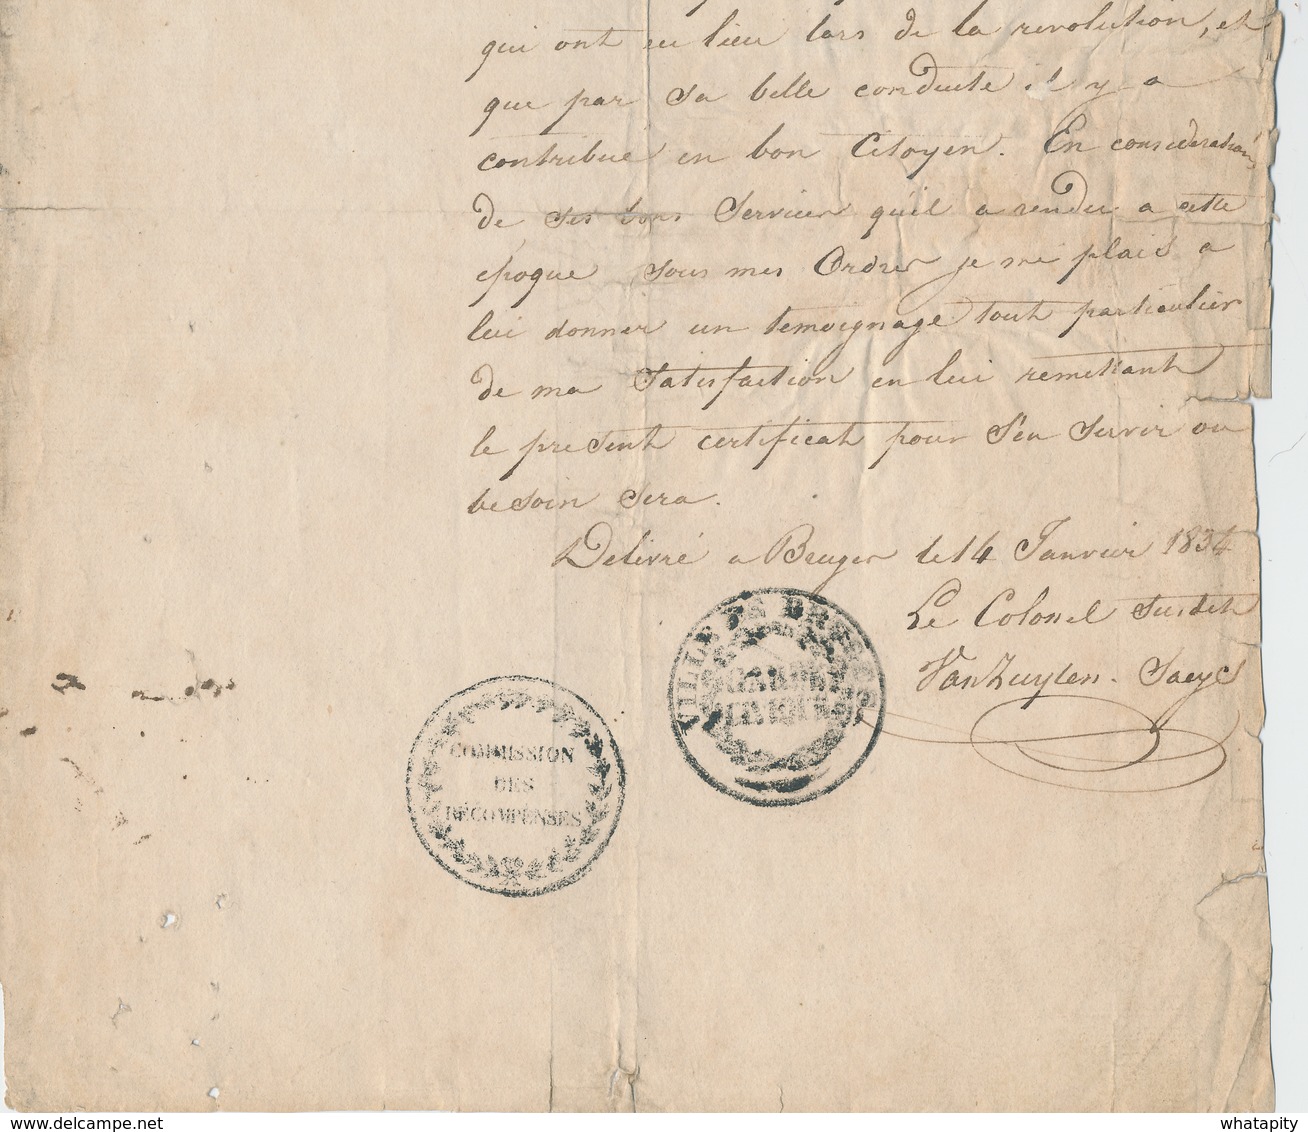 qui ont eu lieu lors de la revolution, et
que par Sa belle conduite il y a
contribue en bon Citoyen. En consideration
de ses bons Services qu'il a rendu a cette
epoque sous mes Ordres je me plais a
lui donner un temoignage tout particulier
de ma Satisfaction en lui remettant
le present certificat pour s'en servir ou
besoin sera.
Delivré a Bruges le 14 Janvier 1834
Le Colonel Susdit
Van Zuylen. Saeys
VILLE DE BRUGES
GARDE
COMMISSION
DES
RÉCOMPENSES
www.delcampe.net
whatapity